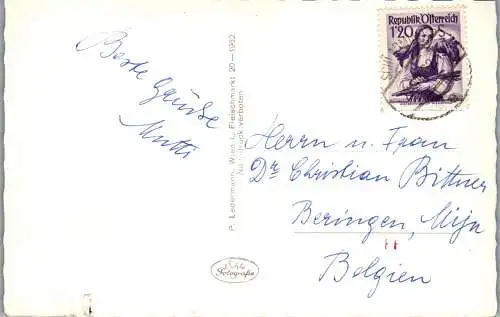 Beste Grüße
Mutti
P. Ledermann, Wien I., Fleischmarkt 20 - 1952
Nachdruck verboten
Echte
Fotografie
Republik Österreich
1'20
Herrn u. Frau
Dr. Christian Bittner
Beringen, Mijn
Belgien